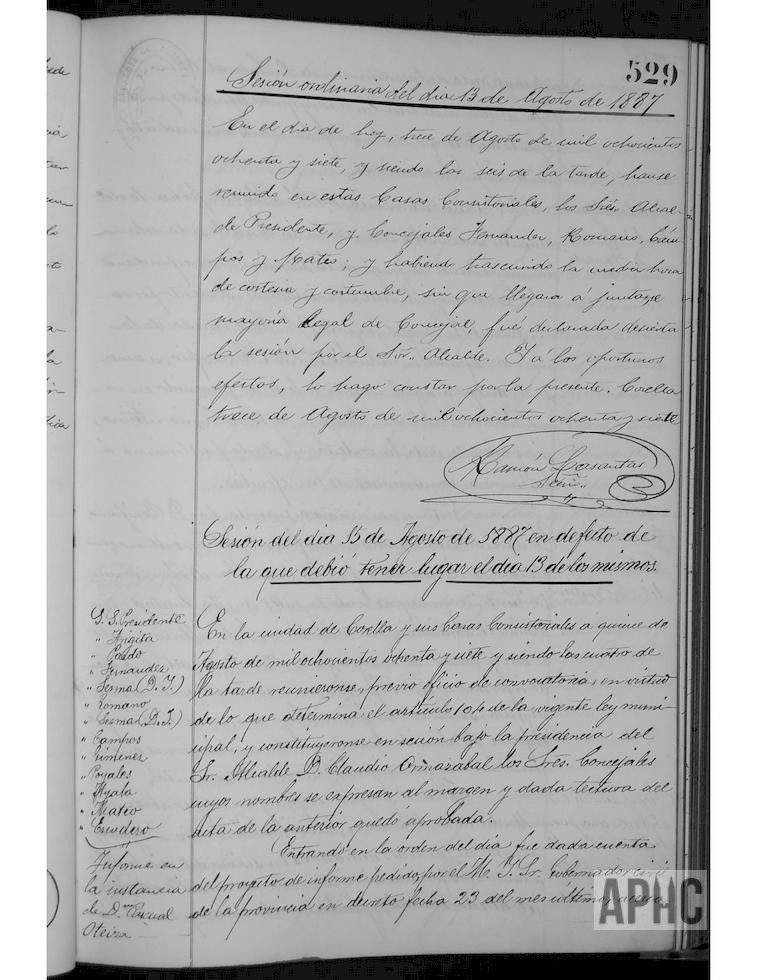 529
Sesión ordinaria del dia 13 de Agosto de 1887
En el dia de hoy, trece de Agosto de mil ochocientos
ochenta y siete, y siendo las seis de la tarde, hanse
reunido en estas Casas Consistoriales, los Srés. Alcal-
de Presidente, y Concejales Fernandez, Romano, Cám-
pos y Mateo; y habiendo trascurrido la media hora
de cortesia y costumbre, sin que llegara á juntarse
mayoria legal de Concejal, fué declarada desierta
la sesión por el Sor. Alcalde. Y á los oportunos
efectos, lo hago constar por la presente. Corella
trece de Agosto de mil ochocientos ochenta y siete
Ramón
Sesión del dia 15 de Agosto de 1887 en defecto de
la que debió tener lugar el dia 13 de los mismos.
S. S. Presidente
" Argita
" Pardo
" Fernandez
" Sesma (D. J.)
" Romano
" Sesma (D. J.)
" Campos
" Gimenez
" Poyales
" Ayala
" Mateo
" Escudero
En la ciudad de Corella y sus Casas Consistoriales a quince de
Agosto de mil ochocientos ochenta y siete y siendo las cuatro de
la tarde reunieronse, previo oficio de convocatoria, en virtud
de lo que determina el artículo 104 de la vigente ley muni-
cipal, y constituyeronse en sesión bajo la presidencia del
Sr. Alcalde D. Claudio Ormazabal los Sres. Concejales
cuyos nombres se expresan al margen y dada lectura del
acta de la anterior quedó aprobada.
Informe en
la instancia
de D. Pascual
Oteiza
Entrando en la orden del dia fue dada cuenta
del proyecto de informe pedido por el M. I. Sr. Gobernador civil
de la provincia en decreto fecha 23 del mes último, acerca
APHC